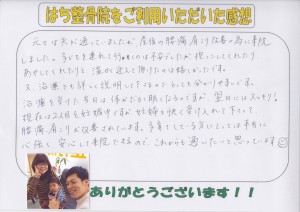 はち整骨院をご利用いただいた感想
元々は夫が通っていましたが、産後の腰痛肩こり改善の為に来院
しました。子どもを連れて
あやしてくれたりと
又、治療でも詳しく説明して下さるので とても分かりやすいです。
治療を受けた当日は体がだるく眠くなるのですが、翌日にはスッキリ!
現在は2人目を妊娠中ですが 妊婦も快く受け入れて下さって
腰痛肩こりが改善されています。子育てしている方にとっては本当に
心強く安心して来院できるので、これからも通いたいと思っています
ありがとうございます!!